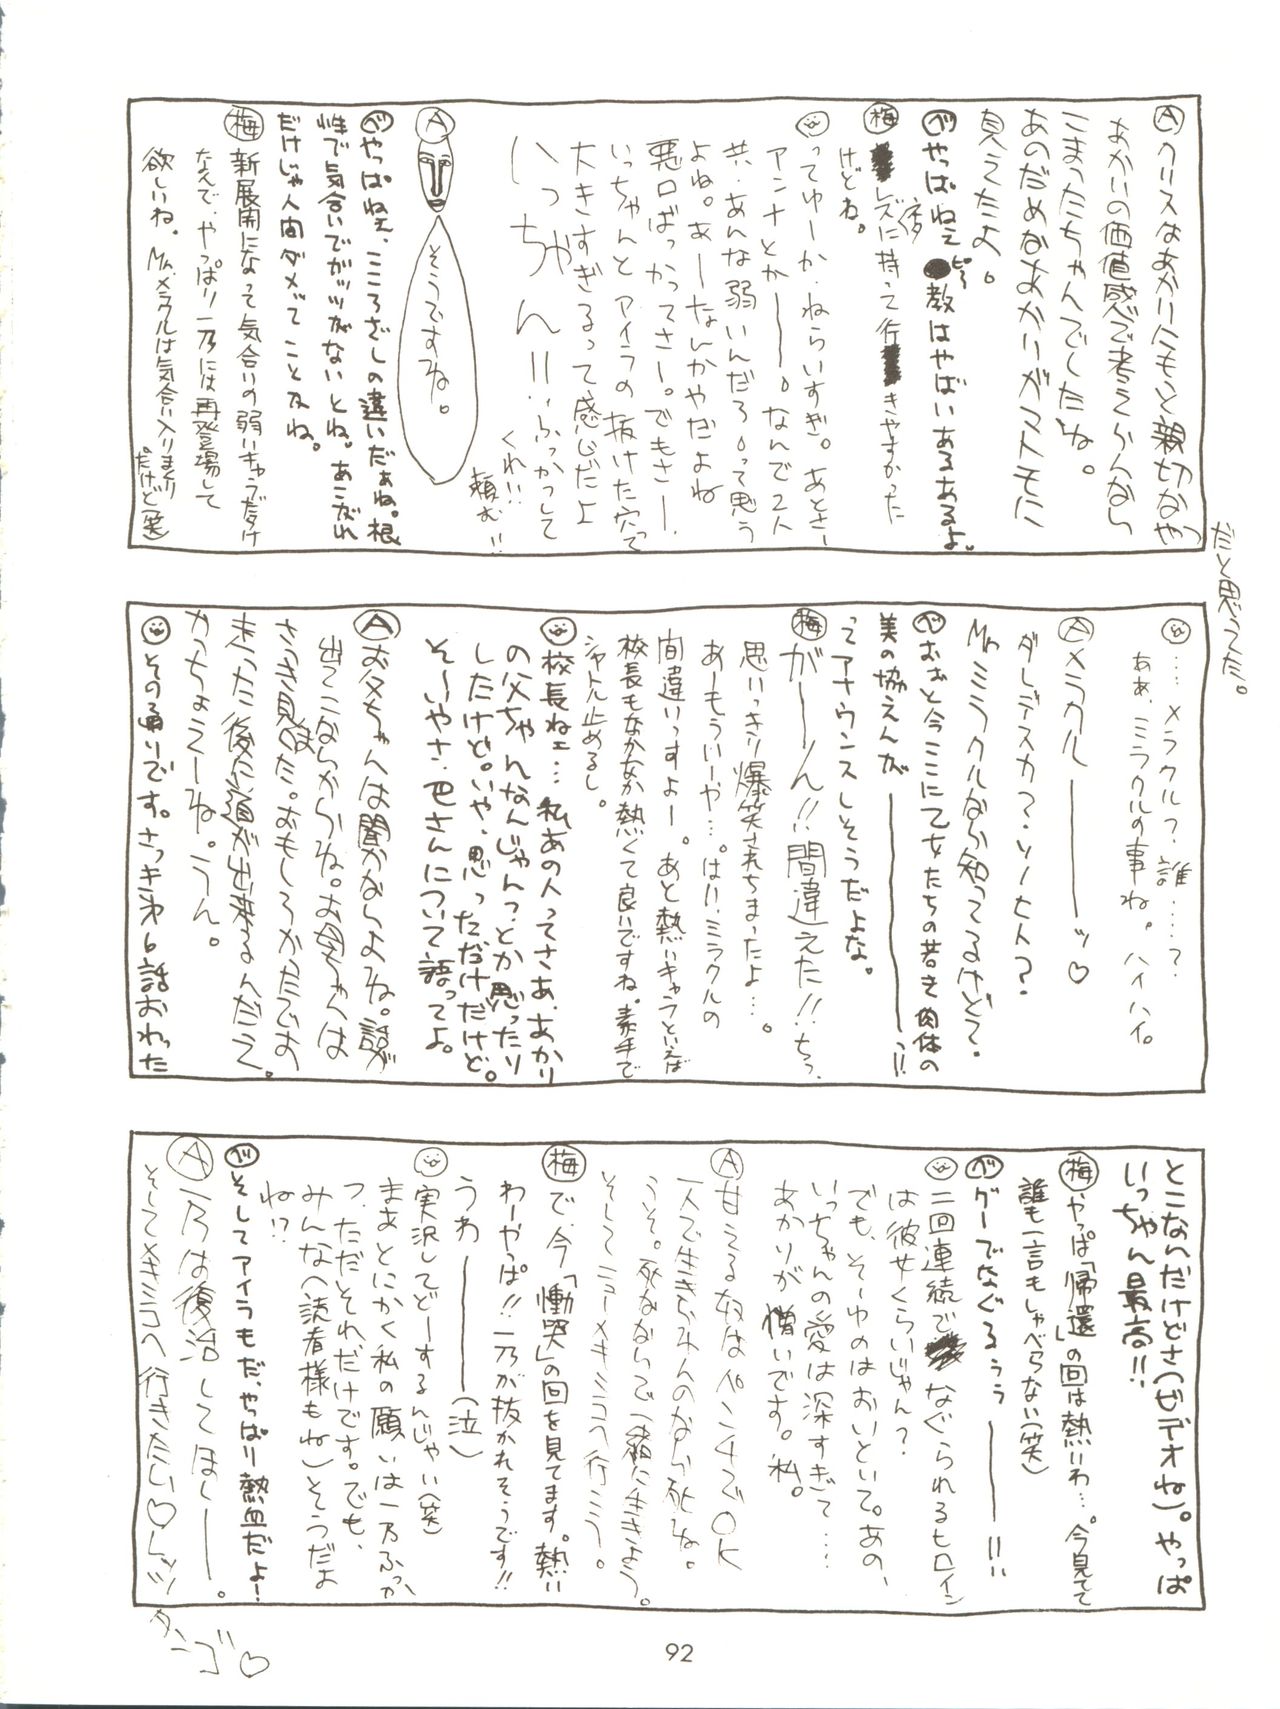 Ⓐクリスはあかりにもっと親切なやつ
だと思うてた。
あかいの価値感で考えらんなら
こまったちゃんでしたね。
あのだめなあかいがマトモに
見えたよ。
ベやっぱねェ●教はやばいあるあるよ。
梅レズに持って行きやすかった
けどね。
ってゆーか、ねらいすぎ。あとさー
アンナとかー。なんで2人
共、あんな弱いんだろって思う
よね。あーなんかやだよね
悪口ばっかってさー。でもさー、
いっちゃんとアイラの抜けた穴って
大きすぎるって感じだよ
いっちゃん!!ふっかつして
くれ!!
頼む!!
Ⓐ
そうですね。
ベやっぱねェ、こころざしの違いだぁね。根
性で気合いでガッツがないとね。あこがれ
だけじゃ人間ダメってことよね。
梅新展開になって気合いの弱いキャラだらけ
なんで、やっぱり一乃には再登場して
欲しいね。Mr.メラクルは気合い入りまくり
だけど(笑)
……メラクル?誰……?
ああ、ミラクルの事ね。ハイハイ。
Ⓐメラクルーーーッ♡
ダレデスカ?ソノヒト?
Mr.ミラクルなら知ってるけどて。
ベおおと今ここに乙女たちの若き肉体の
美の協えんがーーーっ!!
ってアナウンスしそうだよな。
梅がーーん!!間違えた!!ちっ、
思いっきり爆笑されちまったよ…。
あーもういーや…。はい、ミラクルの
間違いっすよー。あと熱いキャラといえば
校長もなかなか熱くて良いですね。素手で
シャトル止めるし。
校長ねェ…私あの人ってさぁ、あかり
の父ちゃんなんじゃんっ?とか思ったり
したけど。いや、思っただけだけど。
そーいやさ、巴さんについて語ってよ。
Ⓐお父ちゃんは聞かならよね。話が
出てこならからね。お母ちゃんは
さっき見た。おもしろかたですね
走った後に道が出来るんだって。
かっちょえーね。うん。
その通りです。さっき第6話おわった
とこなんだけどさ(ビデオね)。やっぱ
いっちゃん最高!!
梅やっぱ「帰還」の回は熱いわ…。今見てて
誰も一言もしゃべらない(笑)
ベグーでなぐるぅぅーーー!!
二回連続でなぐられるヒロイン
は彼女くらいじゃん?
でも、そーゆのはおいといて。あの、
いっちゃんの愛は深すぎて……
あかりが憎いです。私。
Ⓐ甘える奴はパンチでOK
一人で生きられんのなら死ね。
うそ。死なないで一緒に生きよう。
そしてニューメキシコへ行こう。
梅で、今「慟哭」の回を見てます。熱い
わーやっぱ!!一乃が抜かれそうです!!
うわーーー(泣)
実況してどーするんじゃい(笑)
まあとにかく私の願いは一乃ふっか
つ、ただそれだけです。でも、
みんな(読者様もね)そうだよ
ね!?
ベそしてアイラもだ、やっぱり熱血だよ!
Ⓐ一乃は復活してほしーー。
そしてメキシコへ行きたい♡レッツ
タンゴ♡
92